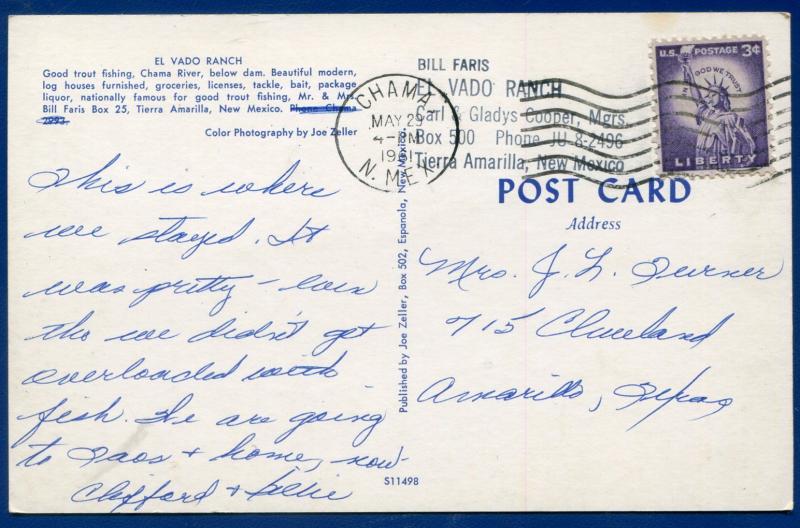 EL VADO RANCH
Good trout fishing, Chama River, below dam. Beautiful modern,
log houses furnished, groceries, licenses, tackle, bait, package
liquor, nationally famous for good trout fishing, Mr. & Mrs.
Bill Faris Box 25, Tierra Amarilla, New Mexico. Phone Chama
Color Photography by Joe Zeller
This is where
we stayed. It
was pretty - even
tho we didn't get
overloaded with
fish. We are going
to Taos & home, now
Clifford & Billie
Published by Joe Zeller, Box 502, Espanola, New Mexico.
S11498
CHAMA
MAY 29
4 - PM
1961
N. MEX
BILL FARIS
EL VADO RANCH
Carl & Gladys Cooper, Mgrs.
Box 500 Phone JU 8-2496
Tierra Amarilla, New Mexico
U.S. POSTAGE 3¢
IN GOD WE TRUST
LIBERTY
POST CARD
Address
Mrs. J. L. Turner
715 Cleveland
Amarillo, Texas